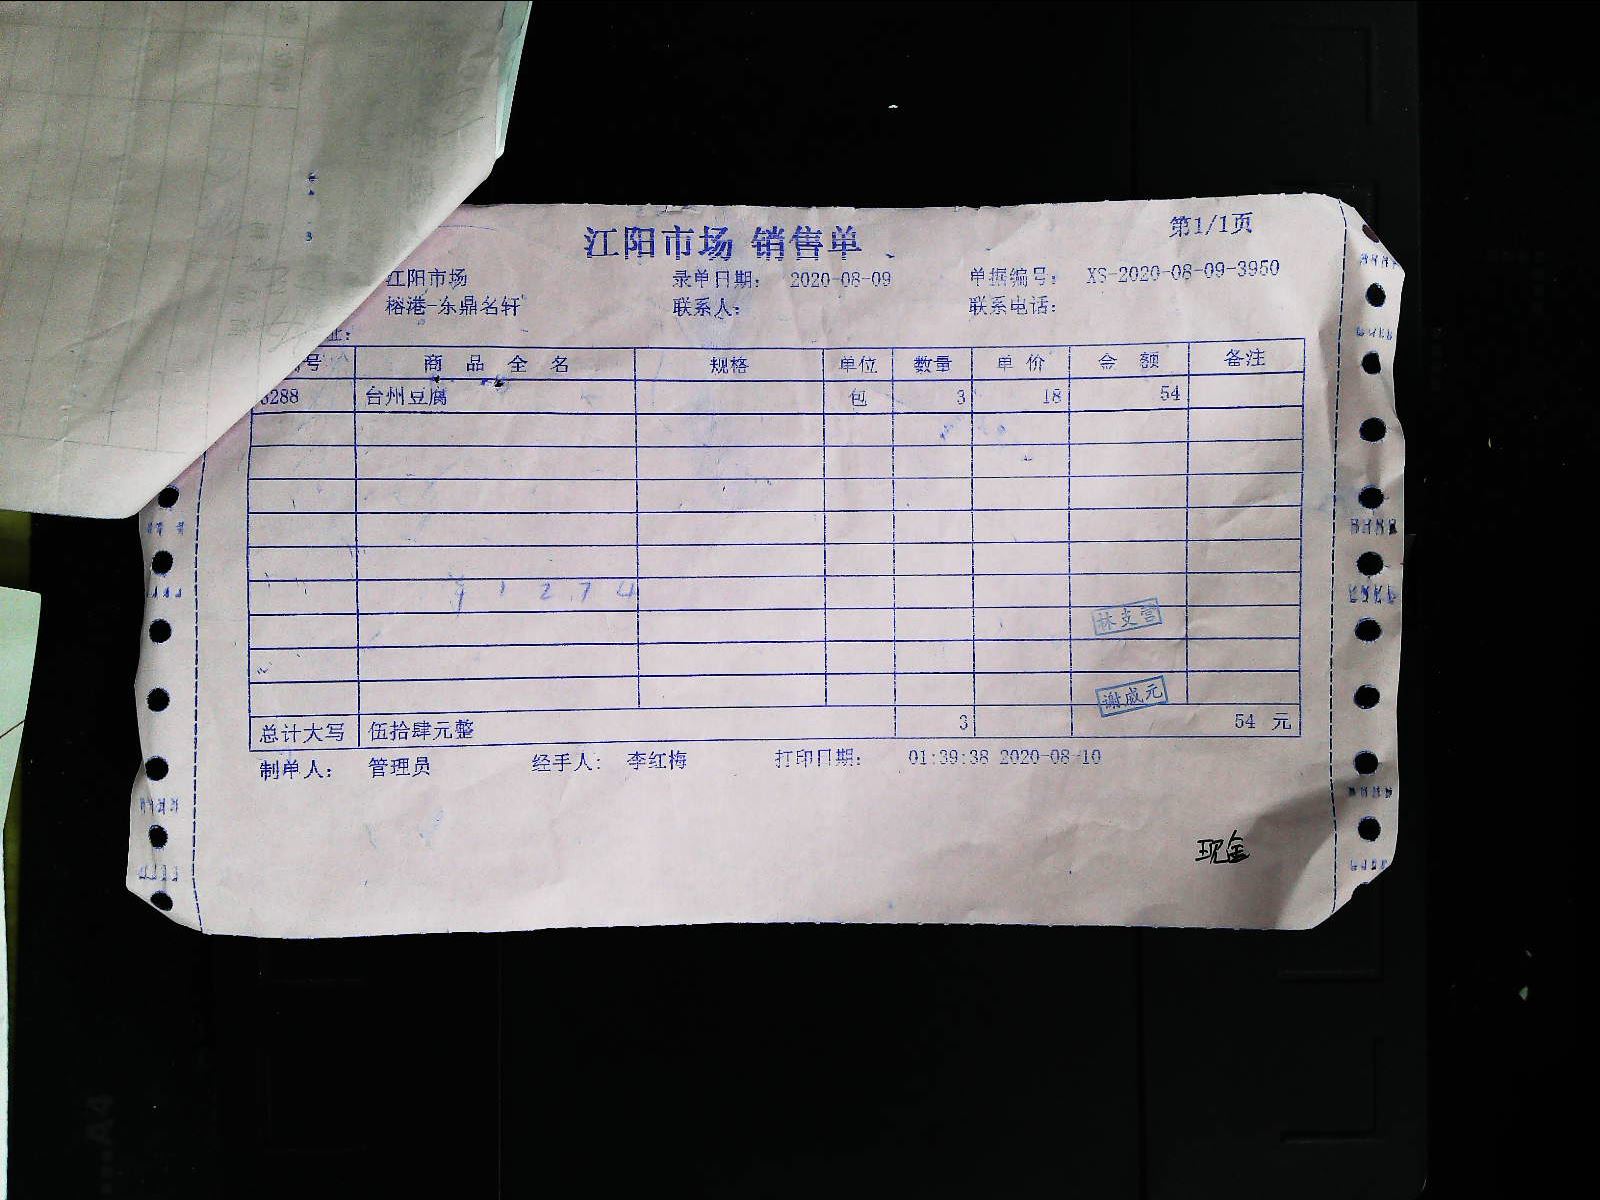 江阳市场 销售单
第1/1页
江阳市场 录单日期: 2020-08-09 单据编号: XS-2020-08-09-3950
榕港-东鼎名轩 联系人: 联系电话:
址:
号 商品全名 规格 单位 数量 单价 金额 备注
288 台州豆腐 包 3 18 54
1 2 7 4
林支雪
谢成元
总计大写 伍拾肆元整 3 54 元
制单人: 管理员 经手人: 李红梅 打印日期: 01:39:38 2020-08-10
现金